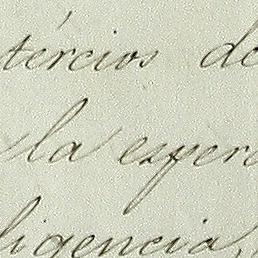 tércios de
la esper
ligencia,